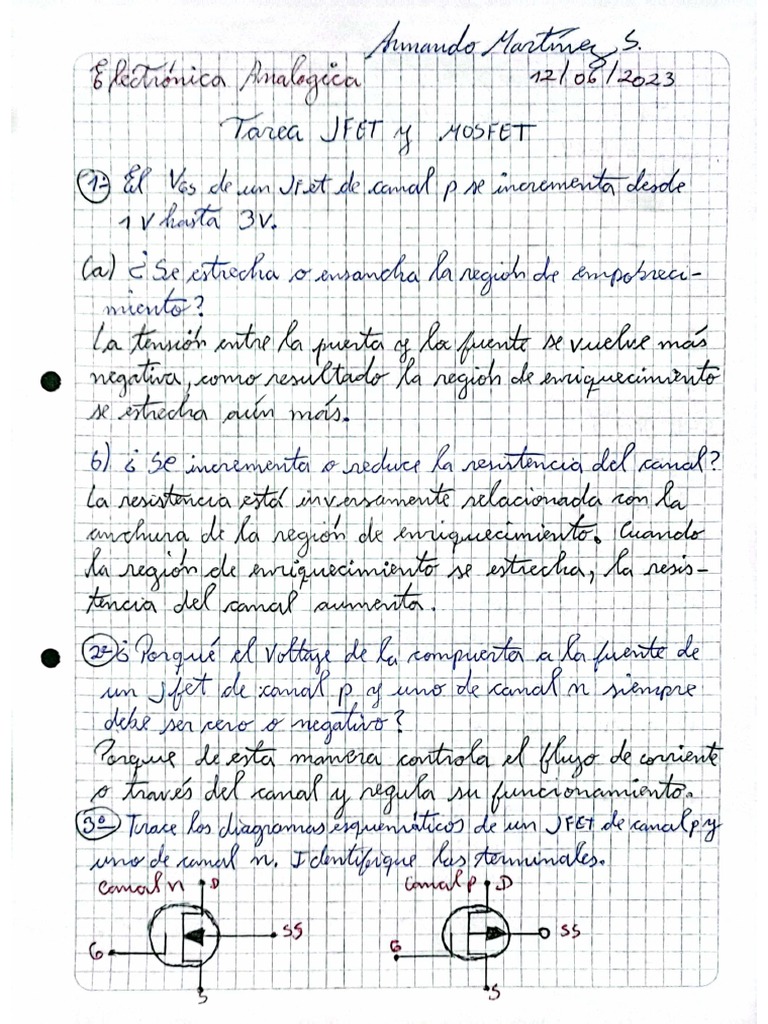 Armando Martínez S.
Electrónica Analogica 12/06/2023
Tarea JFET y MOSFET
1- El VGS de un Jfet de canal p se incrementa desde
1V hasta 3V.
(a) ¿Se estrecha o ensancha la región de empobreci-
miento?
La tensión entre la puerta y la fuente se vuelve más
negativa, como resultado la región de enriquecimiento
se estrecha aún más.
b) ¿Se incrementa o reduce la resistencia del canal?
La resistencia está inversamente relacionada con la
anchura de la región de enriquecimiento. Cuando
la región de enriquecimiento se estrecha, la resis-
tencia del canal aumenta.
2º ¿Porqué el voltaje de la compuerta a la fuente de
un jfet de canal p y uno de canal n siempre
debe ser cero o negativo?
Porque de esta manera controla el flujo de corriente
a través del canal y regula su funcionamiento.
3º Trace los diagramas esquemáticos de un JFET de canal p y
uno de canal n. Identifique las terminales.
canal n D canal p D
G SS G SS
S S